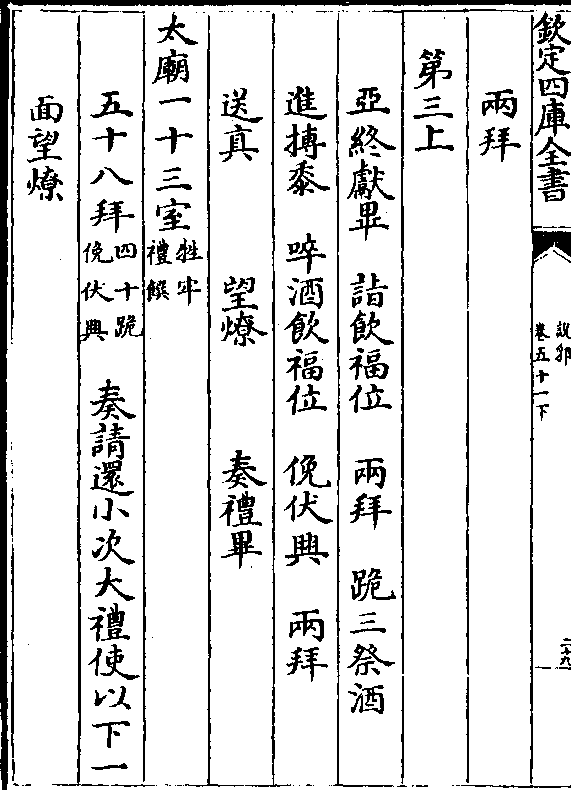 欽定四庫全書
說郛
卷五十一下
二十九
兩拜
第三上
亞終獻畢　詣飲福位　兩拜　跪三祭酒
進摶黍　啐酒飲福位　俛伏興　兩拜
送真　望燎　奏禮畢
太廟一十三室牲牢禮饌
五十八拜四十跪俛伏興　奏請還小次大禮使以下一
面望燎